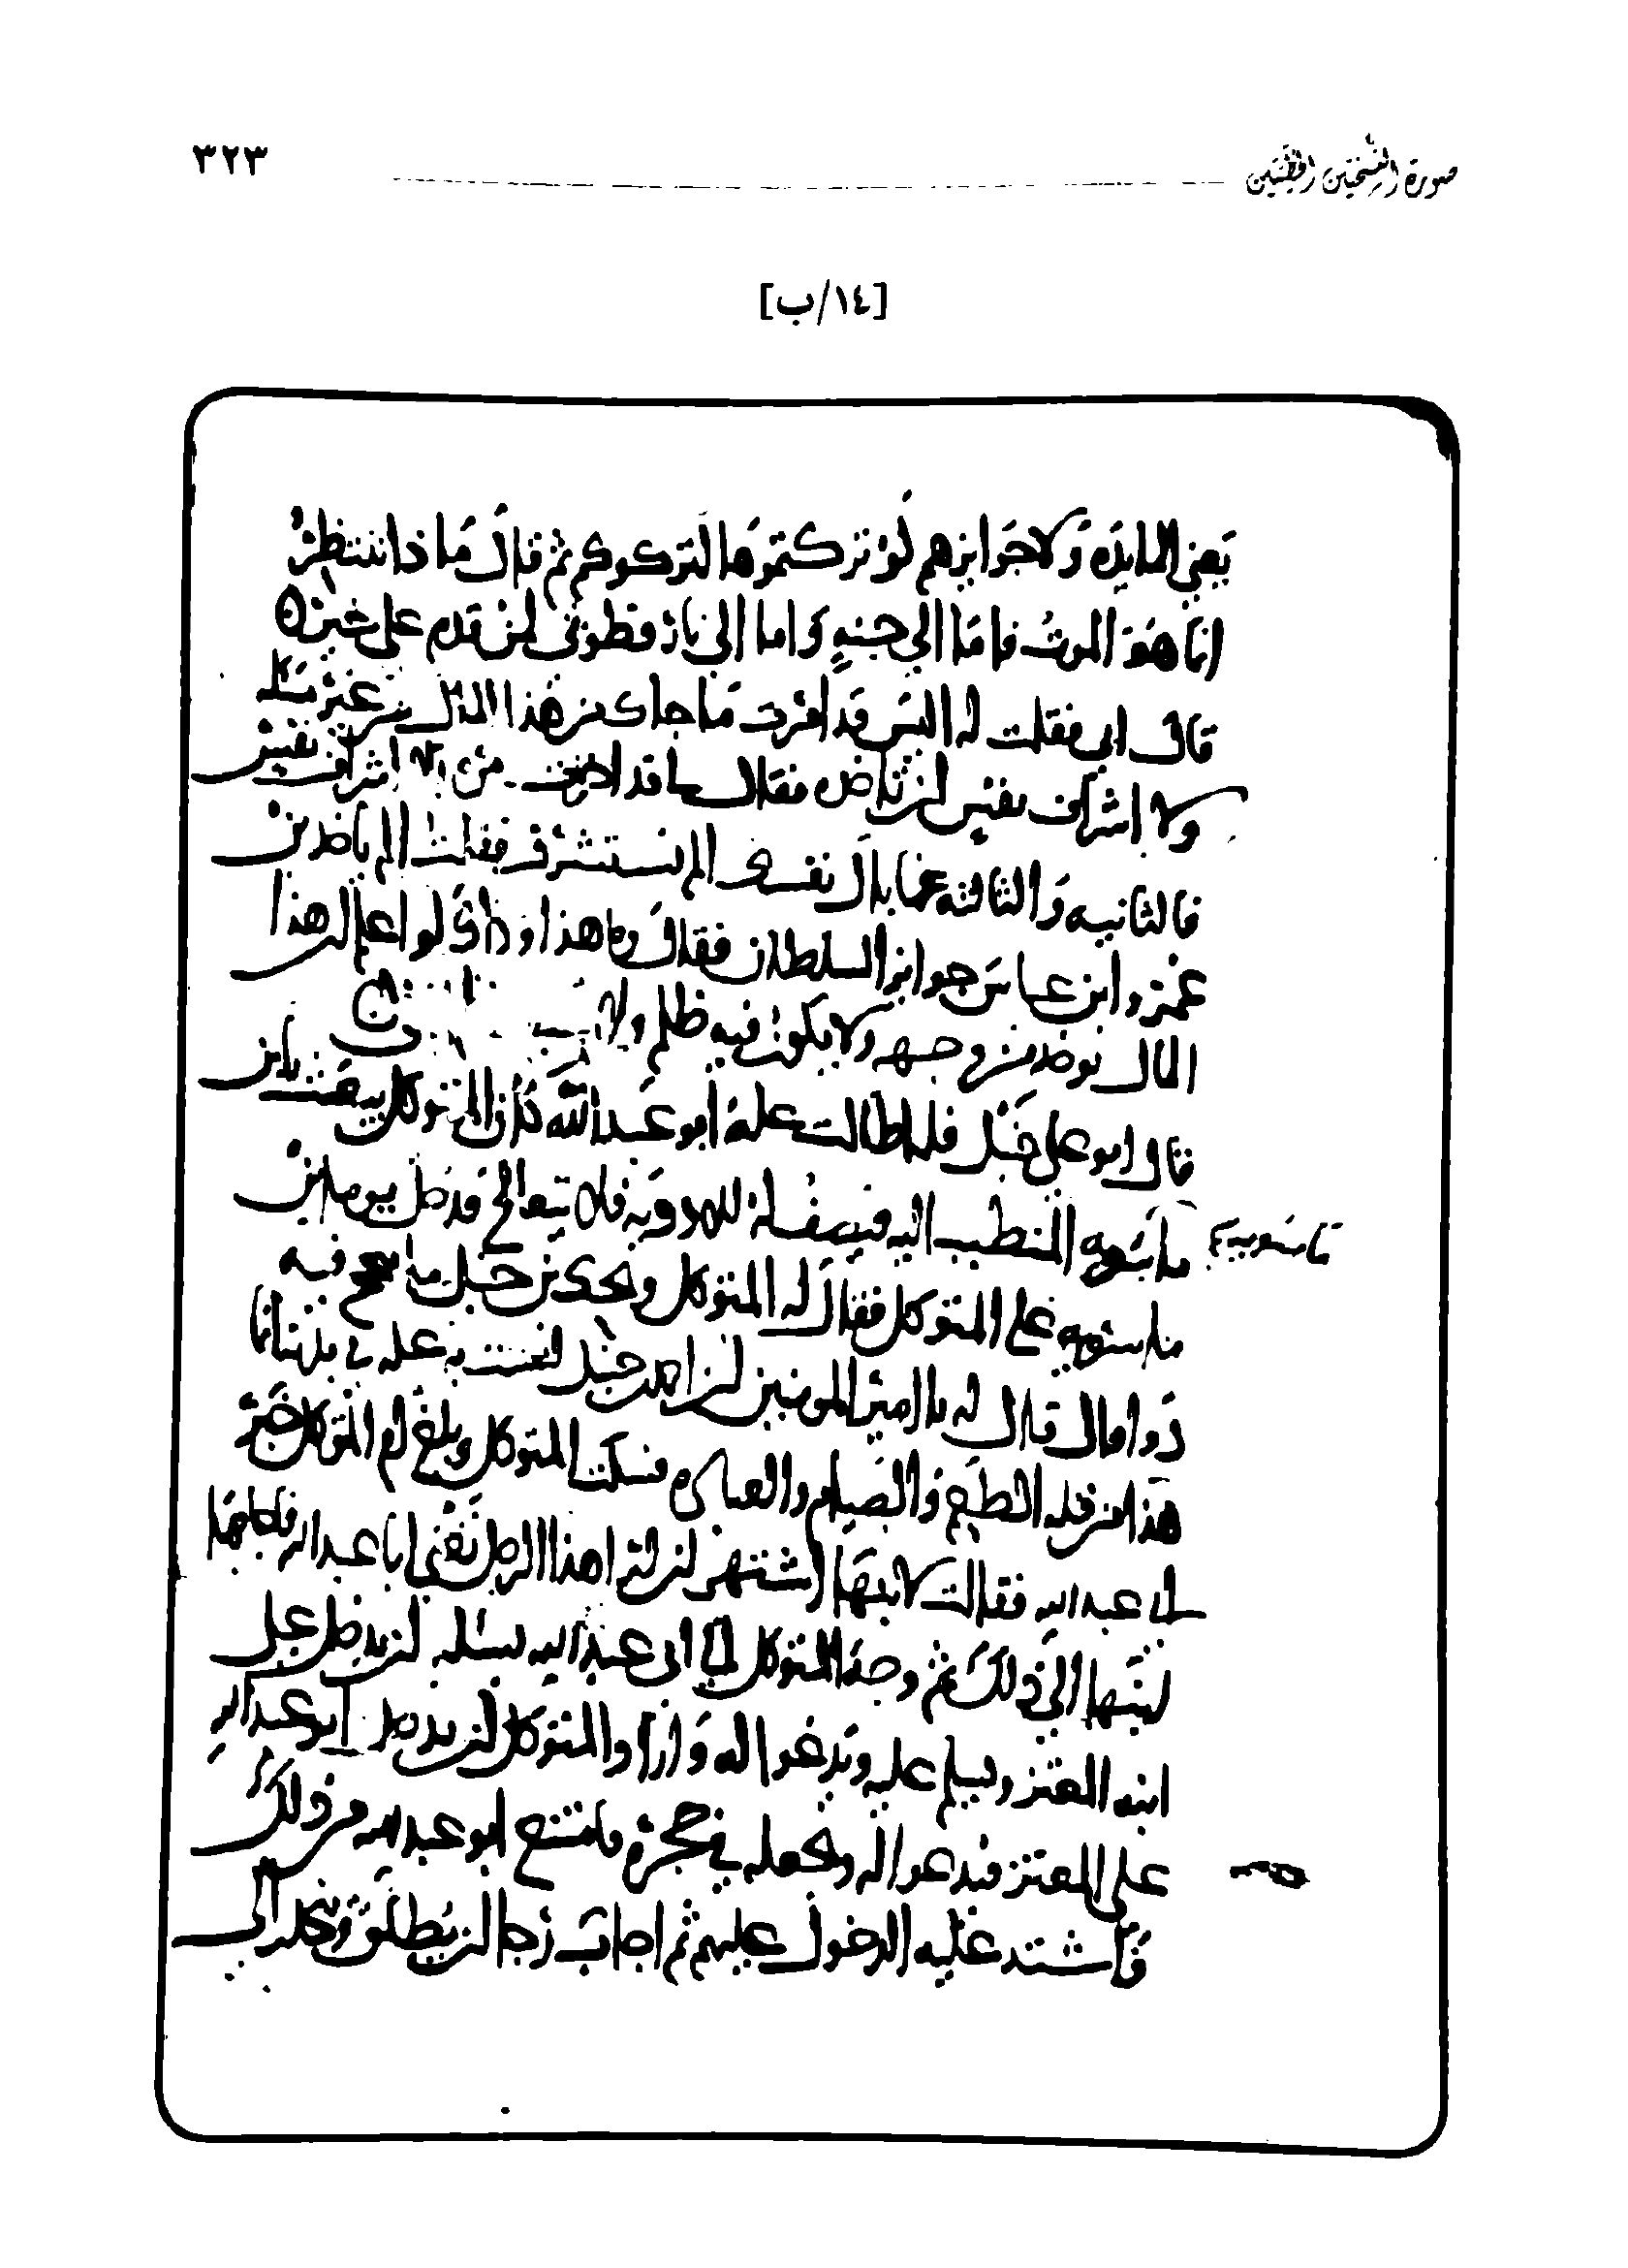 صورة النسختين الخطيتين
٣٢٣
[١٤/ب]
يعني المايده ولا جوايزهم لو تركتموها لتركوكم ثم قال ماذا ننتظر
انما هو الموت فاما الى جنه واما الى نار فطوبى لمن قدم على خير
قال ابي فقلت له اليس قد امرت ما جاك من هذا المال من غير مسله
ولا اشراف نفس ان تاخذه فقال قد اخذت مره بلا اشراف نفس
فالثانيه والثالثه فما بال نفسك الم تستشرف فقلت الم ياخذ ابن
عمر وابن عباس جوايز السلطان فقال ما هذا وذاك لو اعلم ان هذا
المال يوخذ من وجهه ولا يكون فيه ظلم ولا
قال ابو علي حنبل فلما طالت علة ابو عبد الله كان المتوكل يبعث بابن
ماسويه المتطبب اليه فيصف له الادويه فلا يتعالج فدخل يوما ابن
ماسويه
ماسويه على المتوكل فقال له المتوكل ويحك ابن حنبل ما نجع فيه
دوا قال له يا امير المومنين ان احمد بن حنبل ليست به عله في بدنه انما
هذا من قله الطعم والصيام والعباده فسكت المتوكل وبلغ ام المتوكل خبر
ابي عبد الله فقالت لابنها اشتهي ان ارى هذا الرجل تعني ابا عبد الله
ابنها الى ذلك ثم وجه المتوكل الى ابي عبد الله يسله ان يدخل على
ابنه المعتز ويسلم عليه ويدعوا له واراد المتوكل ان يدخل ابو عبد الله
على المعتز فيدعوا له ويجعله في حجره فامتنع ابو عبد الله من ذلك
صح
فاشتد عليه الدخول عليهم ثم اجاب رجا ان يطلق وينحدر الى